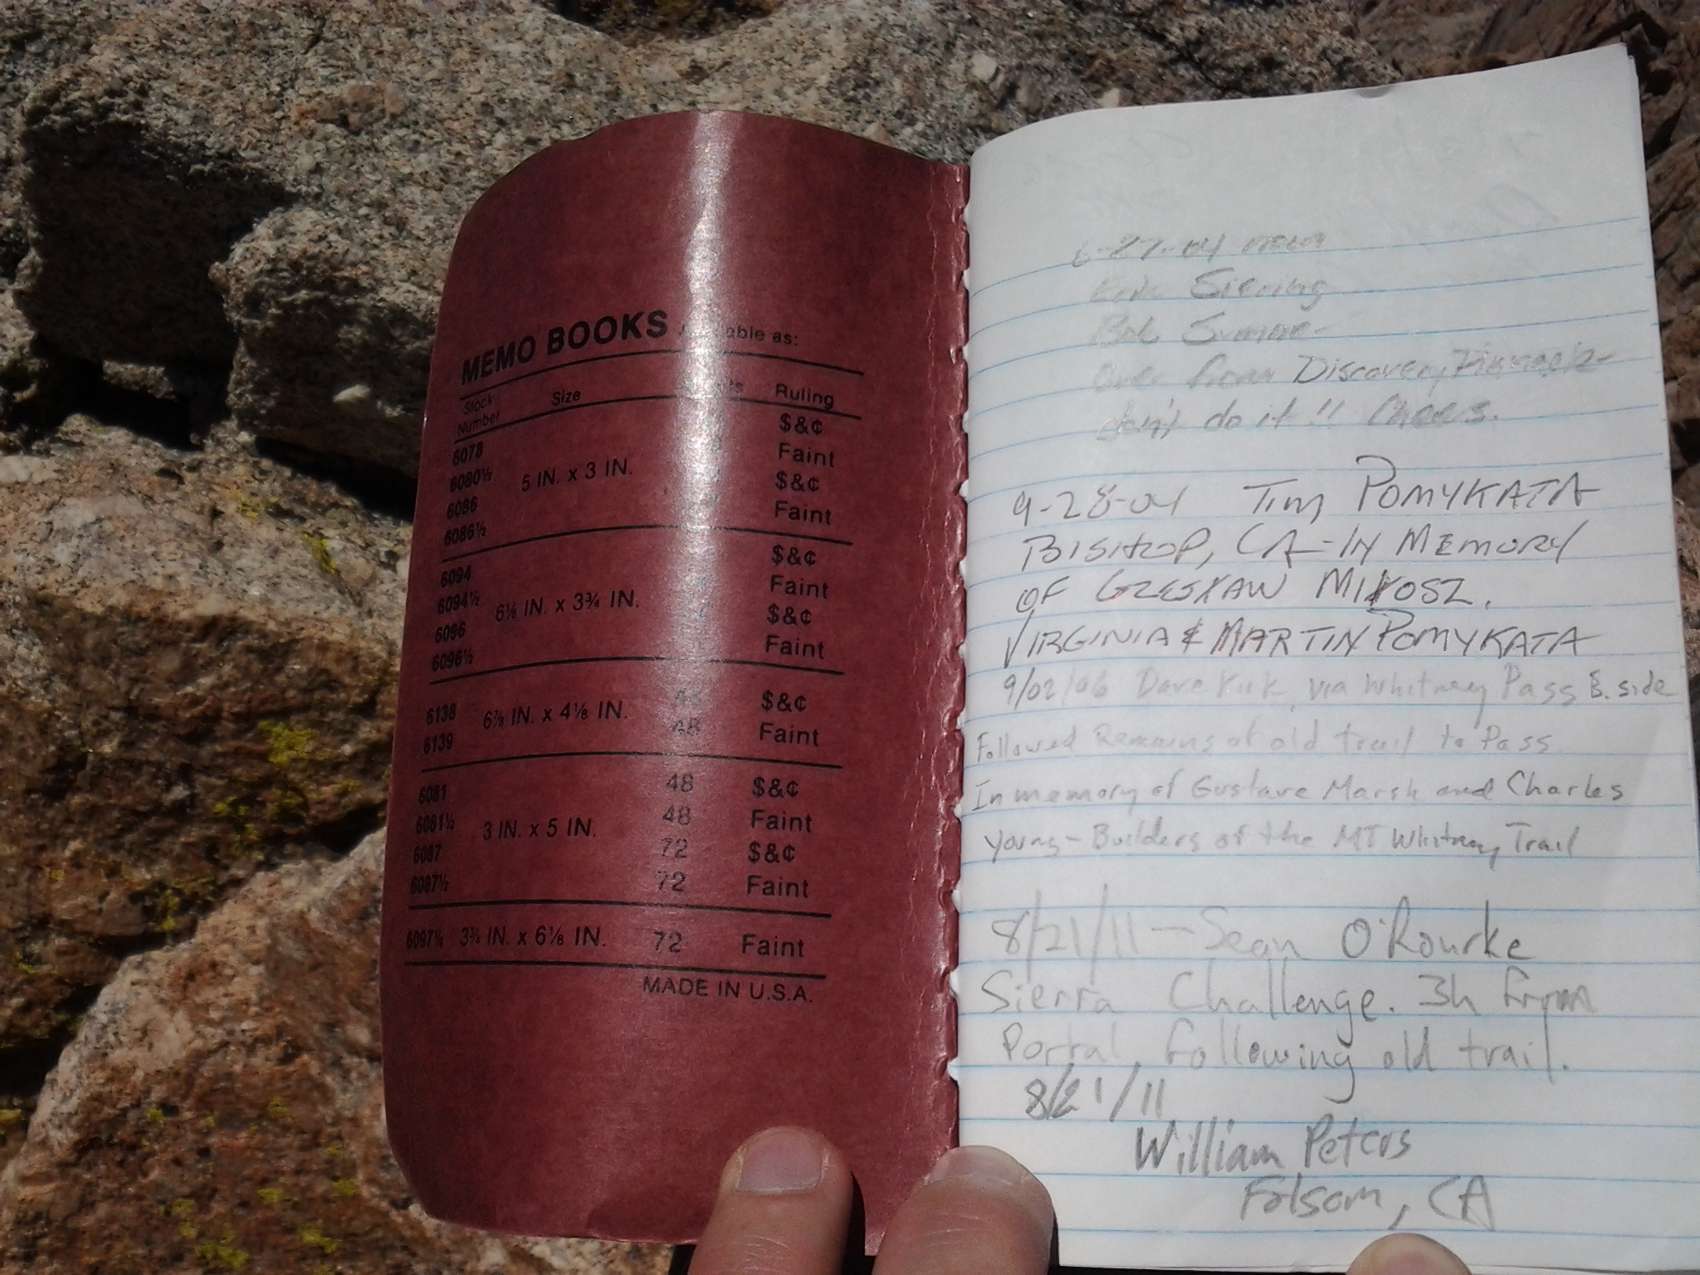 MEMO BOOKS able as:
Stock Number Size Ruling
6078 $&¢
6080½ 5 IN. x 3 IN. Faint
6086 $&¢
6086½ Faint
6094 $&¢
6094½ 6⅛ IN. x 3¾ IN. Faint
6096 $&¢
6096½ Faint
6138 6⅞ IN. x 4⅛ IN. 48 $&¢
6139 48 Faint
6081 48 $&¢
6081½ 3 IN. x 5 IN. 48 Faint
6087 72 $&¢
6087½ 72 Faint
6097½ 3¾ IN. x 6⅛ IN. 72 Faint
MADE IN U.S.A.
6-27-04
Siering
Bob
Over from Discovery Pinnacle
don't do it!! Cheers.
9-28-04 TIM POMYKATA
BISHOP, CA-IN MEMORY
OF MIKOSZ.
VIRGINIA & MARTIN POMYKATA
9/02/06 Dave Kirk via Whitney Pass E. side
Followed Remains of old trail to Pass
In memory of Gustave Marsh and Charles
Young - Builders of the MT Whitney Trail
8/21/11 - Sean O'Rourke
Sierra Challenge. 3h from
Portal, following old trail.
8/21/11
William Peters
Folsom, CA